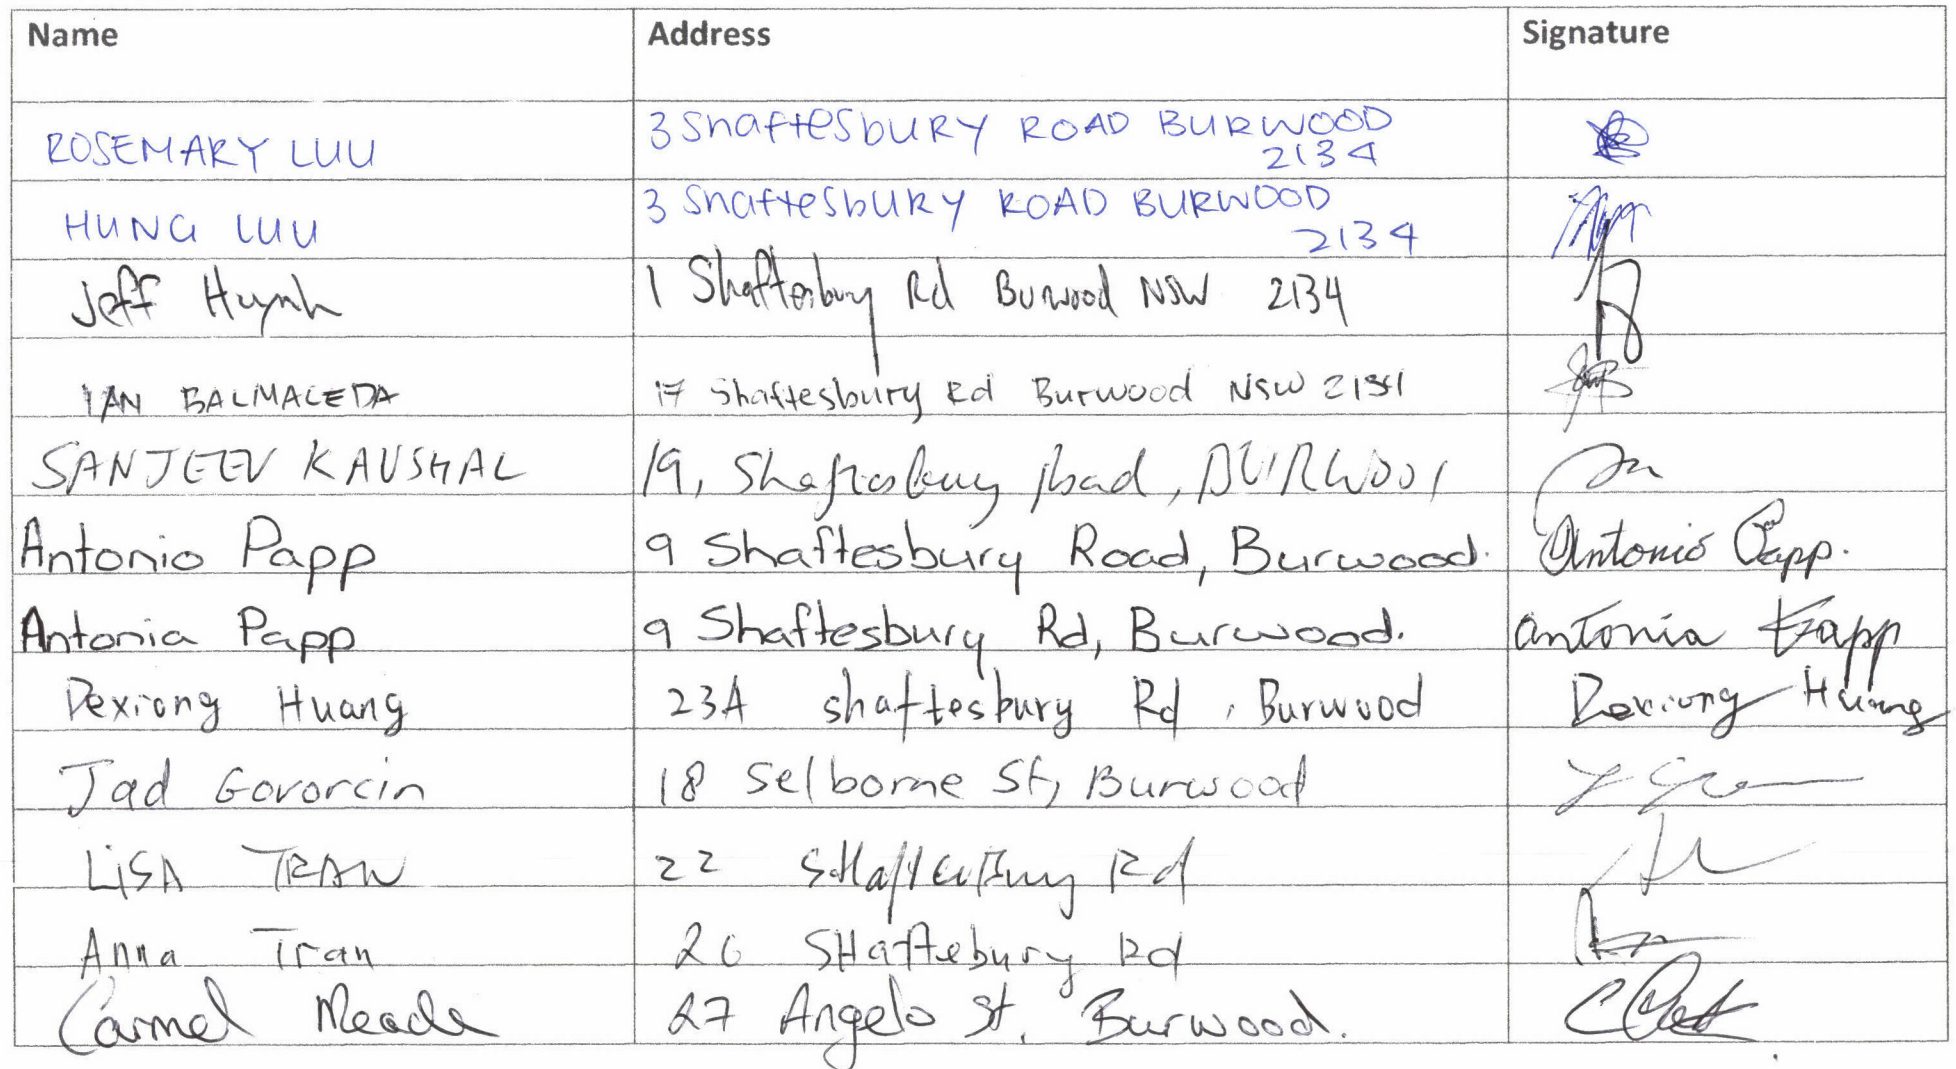 Name Address Signature
ROSEMARY LUU 3 ShaftesbURY ROAD BURWOOD
2134
HUNG LUU 3 ShaftesbURY ROAD BURWOOD
2134
Jeff Huynh 1 Shaftesbury Rd Burwood NSW 2134
IAN BALMACEDA 17 Shaftesbury Rd Burwood NSW 2134
SANJEEV KAUSHAL 19, Shaftesbury Road, BURWOOD
Antonio Papp 9 Shaftesbury Road, Burwood. Antonio Papp.
Antonia Papp 9 Shaftesbury Rd, Burwood. Antonia Papp
Dexiong Huang 23A shaftesbury Rd, Burwood Dexiong Huang
Jad Govorcin 18 Selborne St, Burwood
LiSA TRAN 22 Shaftesbury Rd
Anna Tran 26 SHaftebury Rd
Carmel Meade 27 Angelo St, Burwood.